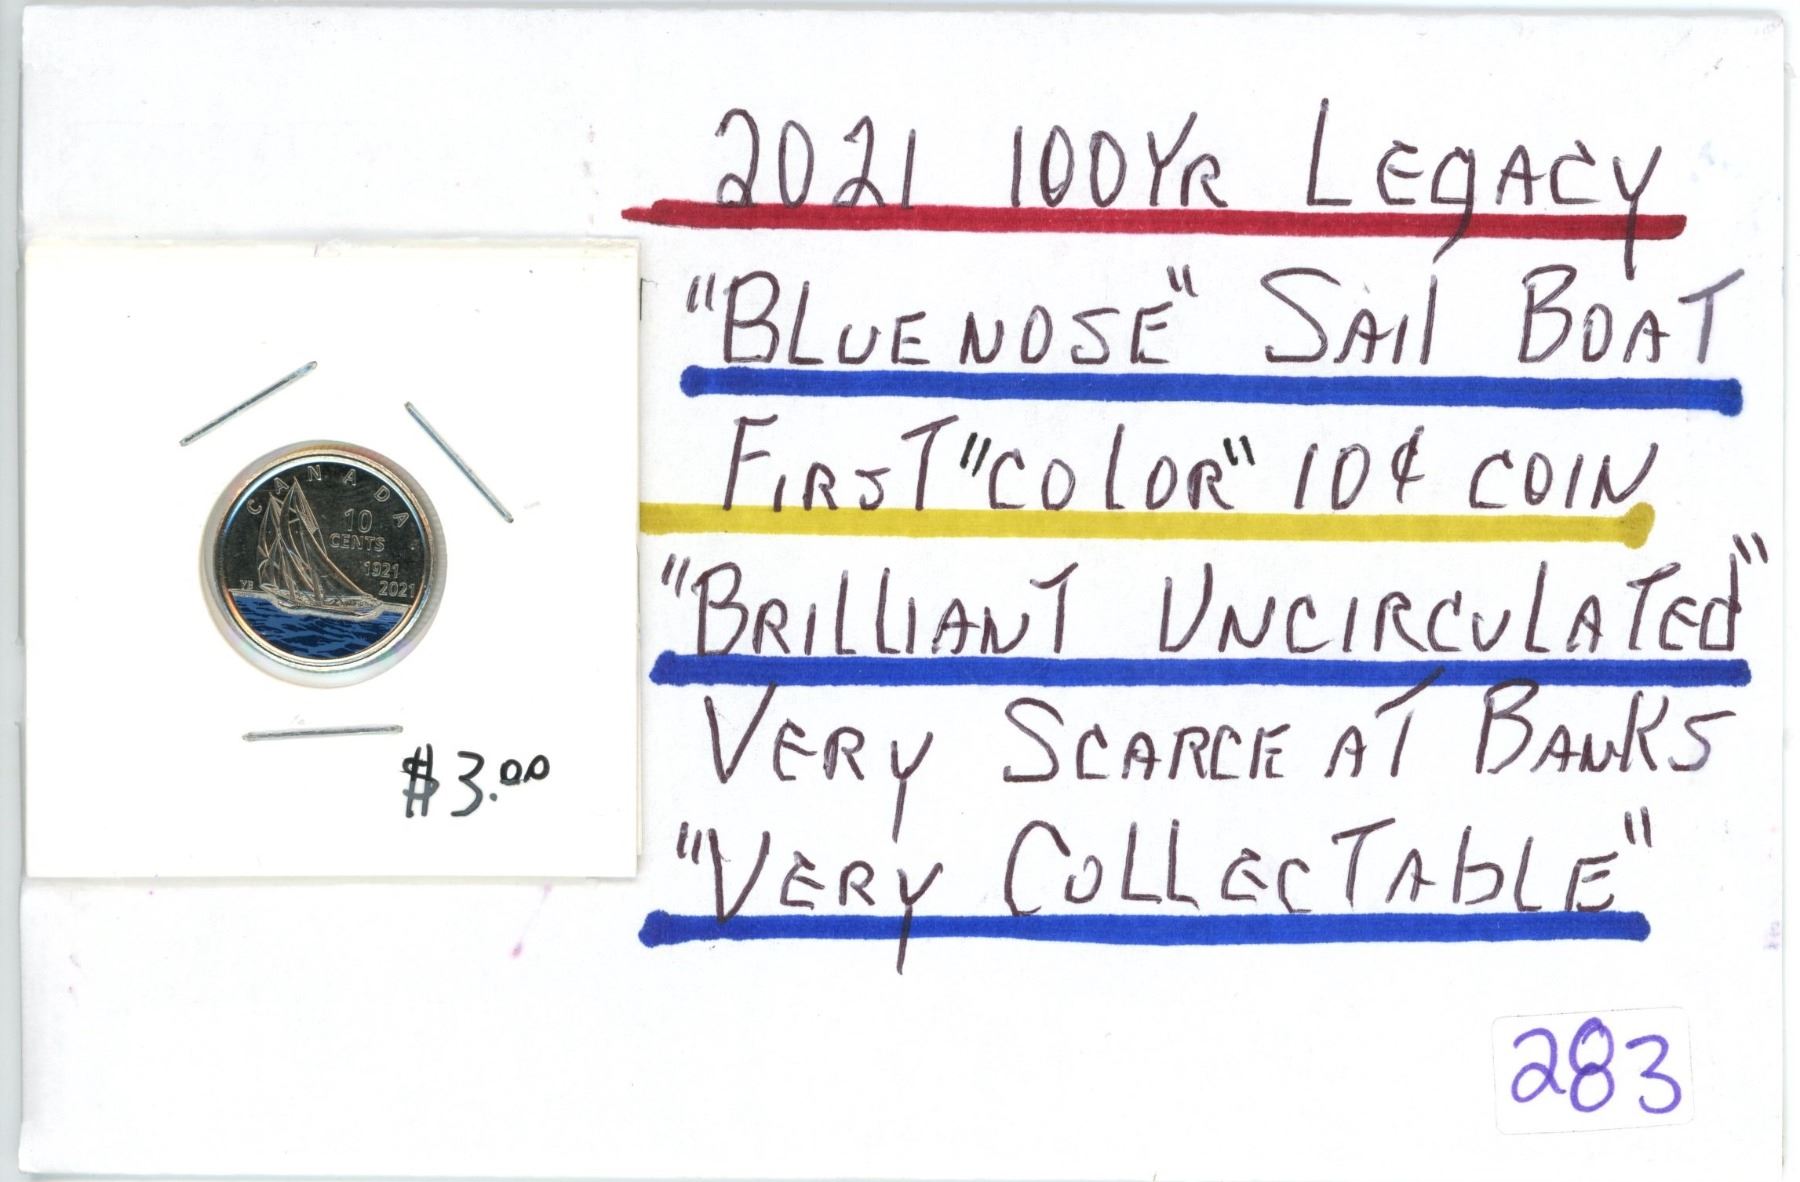 2021 100Yr Legacy
"Bluenose" Sail Boat
First "Color" 10¢ Coin
"Brilliant Uncirculated"
Very Scarce at Banks
"Very Collectable"
CANADA
10
CENTS
1921
2021
YB
$3.00
283